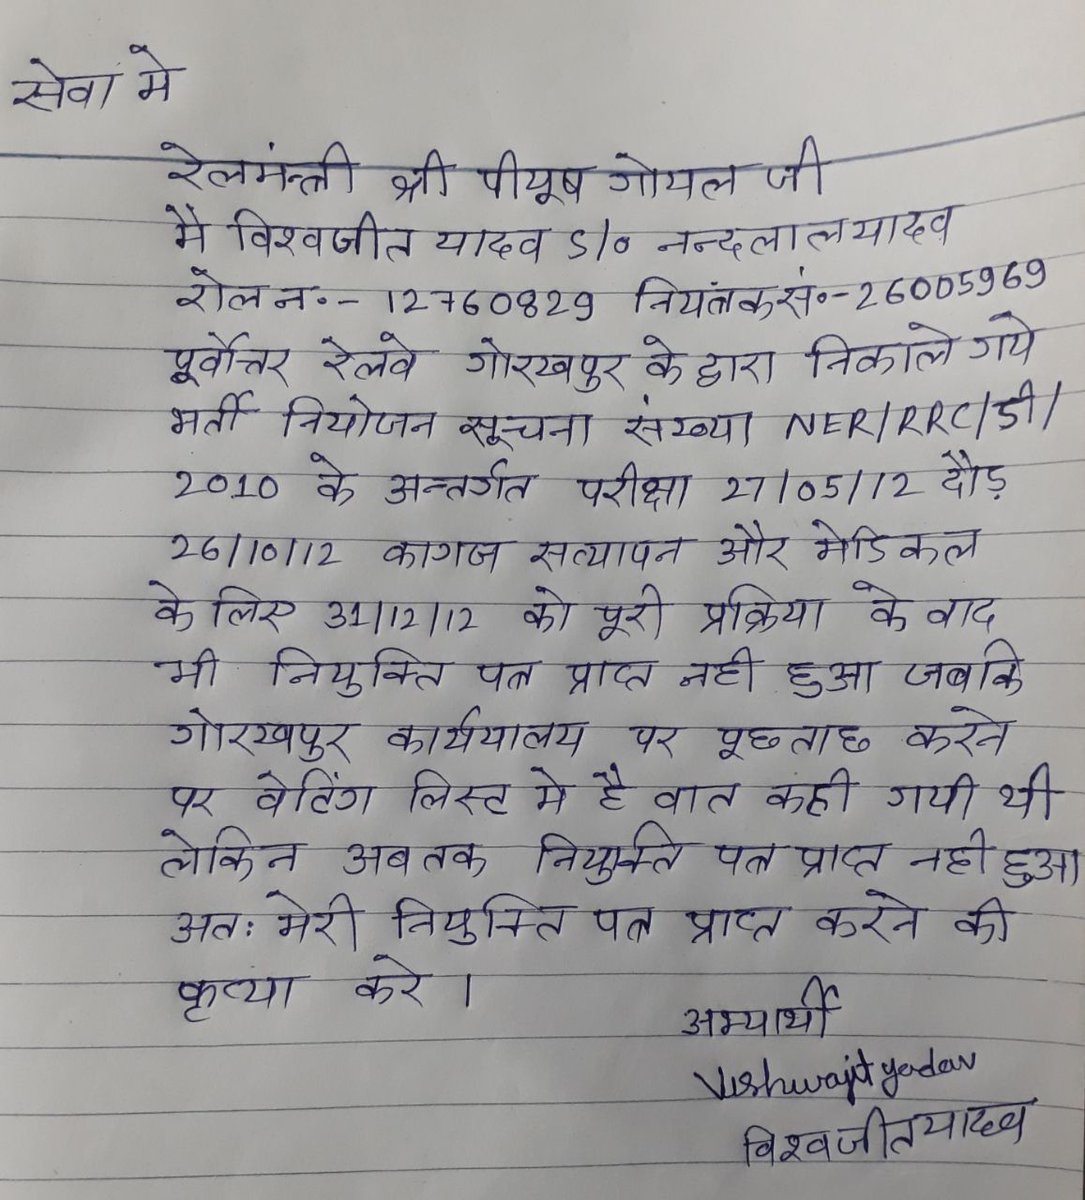 सेवा मे
रेलमंत्री श्री पीयूष गोयल जी
मै विश्वजीत यादव S/o नन्दलाल यादव
रोल न०- 12760829 नियंत्रक सं०- 26005969
पूर्वोत्तर रेलवे गोरखपुर के द्वारा निकाले गये
भर्ती नियोजन सूचना संख्या NER/RRC/डी/
2010 के अन्तर्गत परीक्षा 27/05/12 दौड़
26/10/12 कागज सत्यापन और मेडिकल
के लिए 31/12/12 को पूरी प्रक्रिया के वाद
भी नियुक्ति पत्र प्राप्त नही हुआ जबकि
गोरखपुर कार्ययालय पर पूछताछ करने
पर वेटिंग लिस्ट मे है वात कही गयी थी
लेकिन अब तक नियुक्ति पत्र प्राप्त नही हुआ
अतः मेरी नियुक्ति पत्र प्राप्त करने की
कृप्या करे ।
अभ्यार्थी
Vishwajit yadav
विश्वजीत यादव